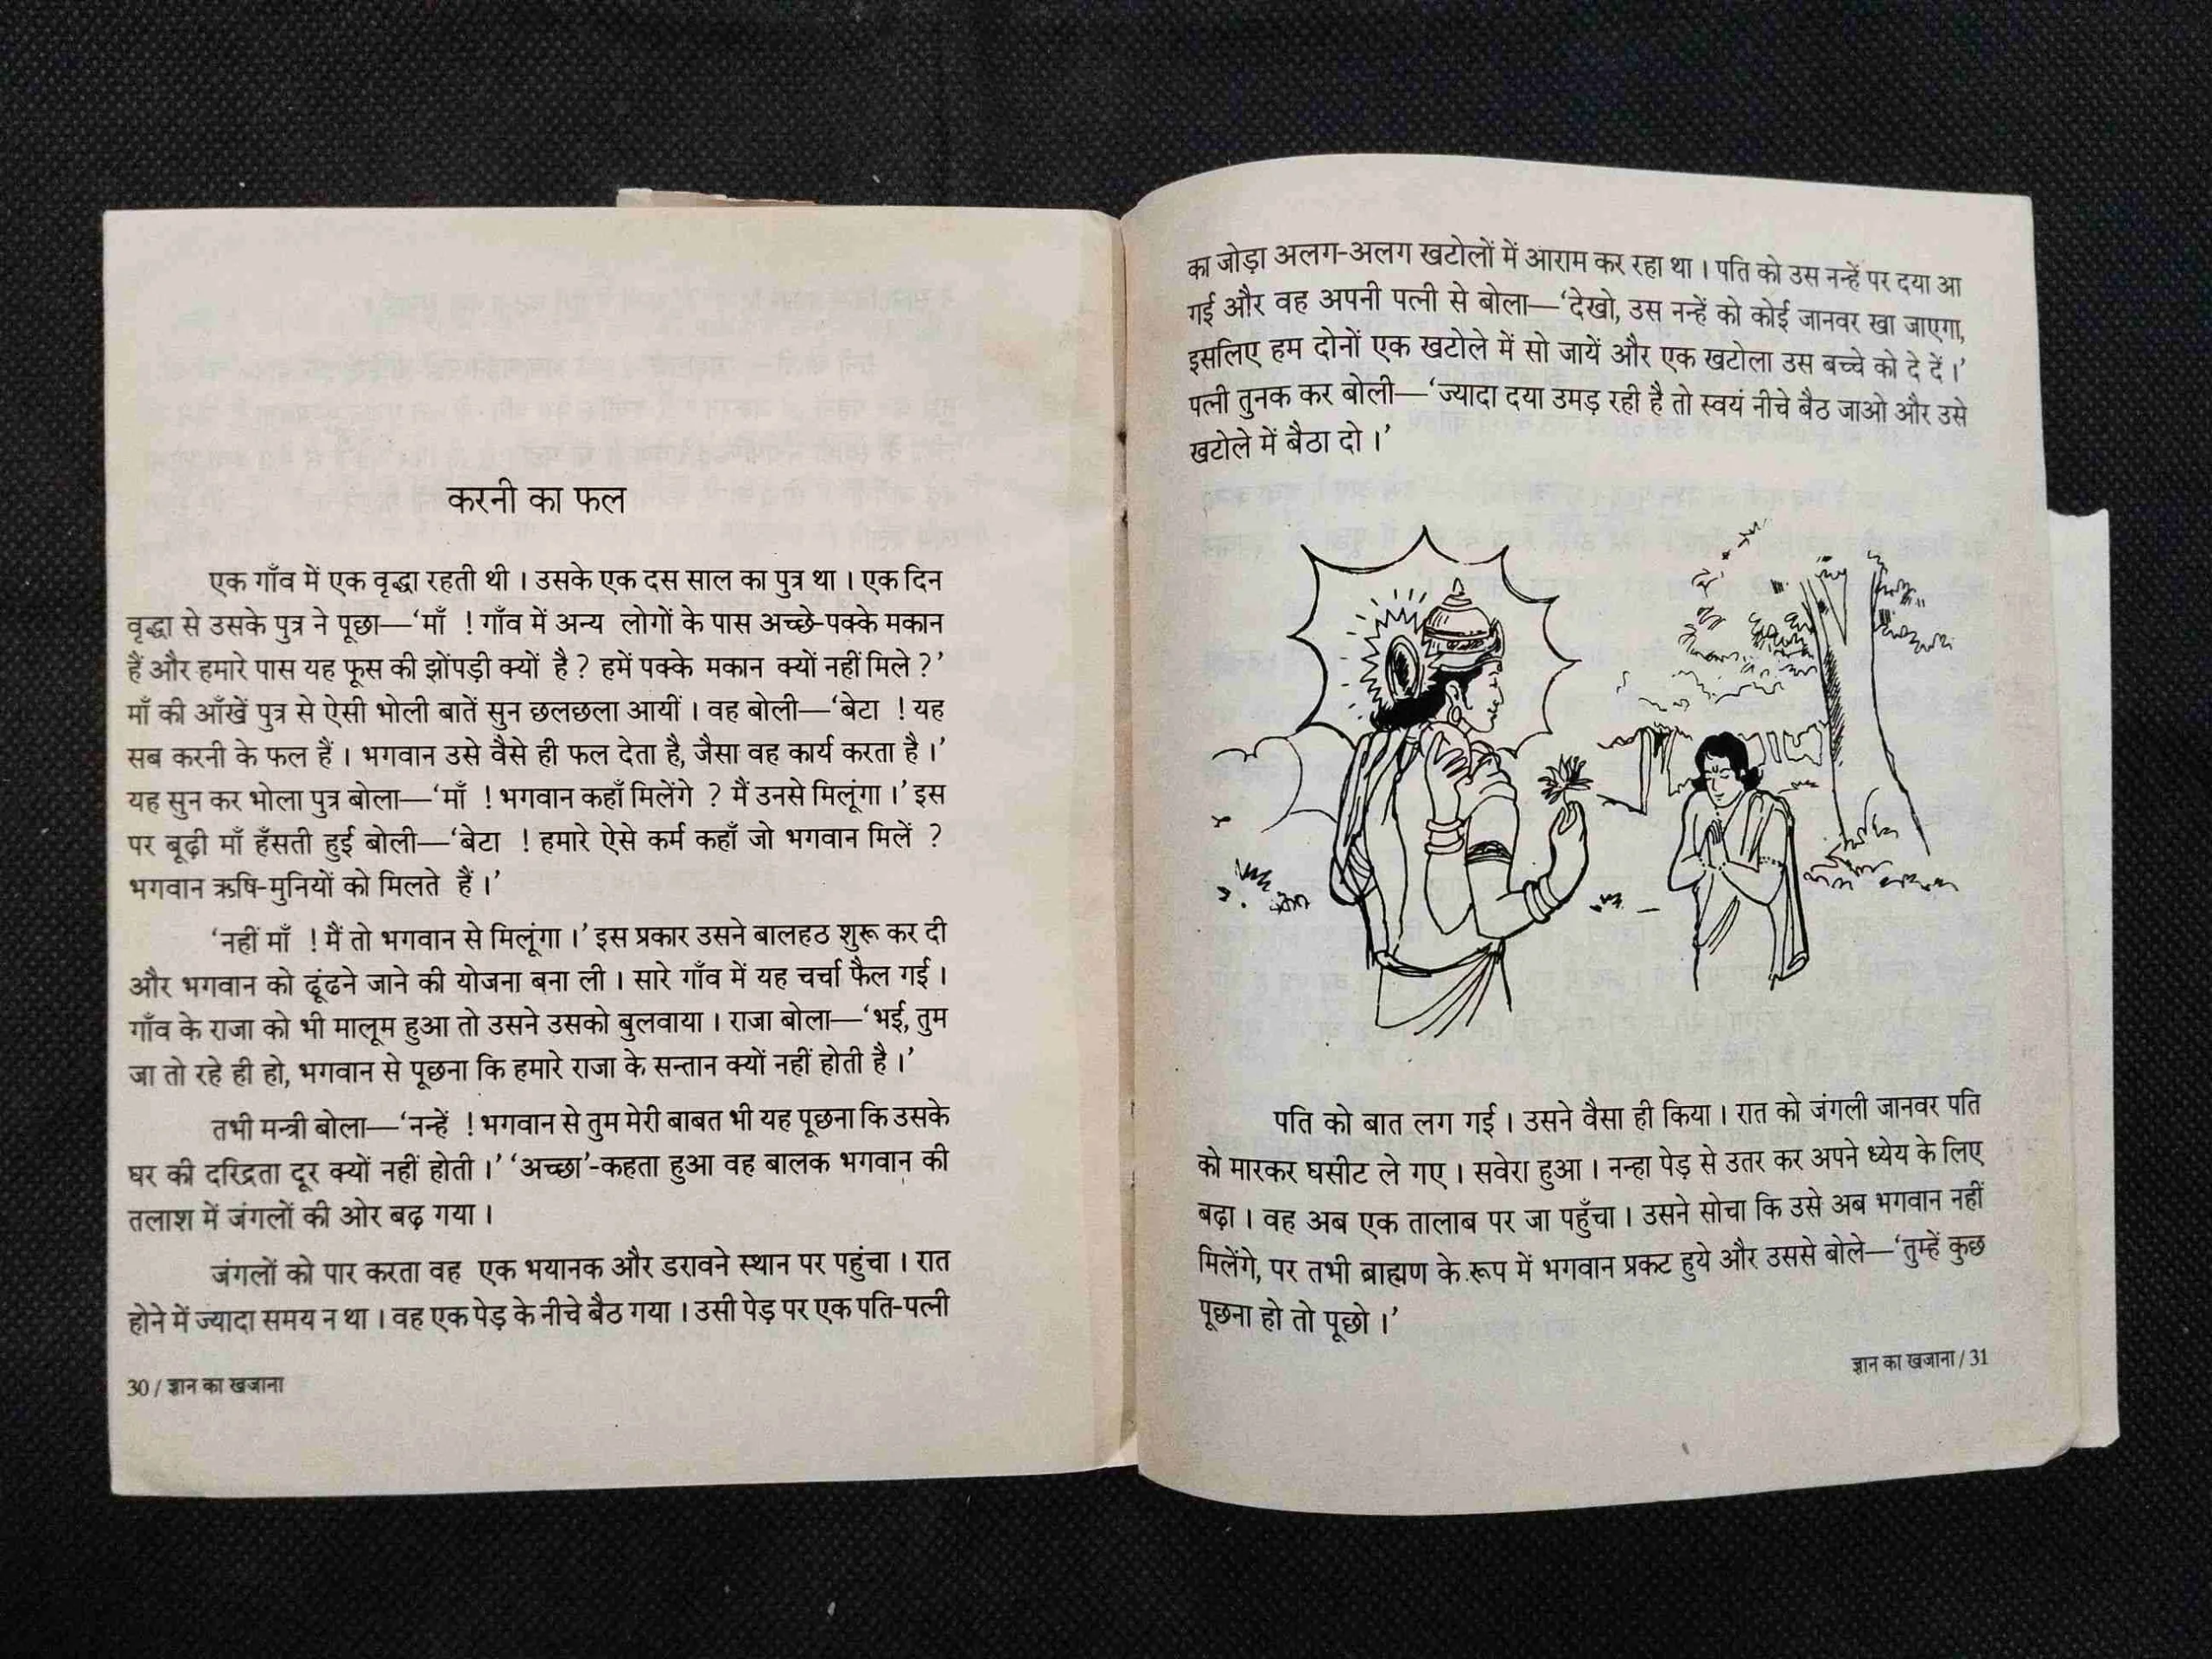 करनी का फल
एक गाँव में एक वृद्धा रहती थी । उसके एक दस साल का पुत्र था । एक दिन
वृद्धा से उसके पुत्र ने पूछा—‘माँ ! गाँव में अन्य लोगों के पास अच्छे-पक्के मकान
हैं और हमारे पास यह फूस की झोंपड़ी क्यों है ? हमें पक्के मकान क्यों नहीं मिले ?’
माँ की आँखें पुत्र से ऐसी भोली बातें सुन छलछला आयीं । वह बोली—‘बेटा ! यह
सब करनी के फल हैं । भगवान उसे वैसे ही फल देता है, जैसा वह कार्य करता है ।’
यह सुन कर भोला पुत्र बोला—‘माँ ! भगवान कहाँ मिलेंगे ? मैं उनसे मिलूंगा ।’ इस
पर बूढ़ी माँ हँसती हुई बोली—‘बेटा ! हमारे ऐसे कर्म कहाँ जो भगवान मिलें ?
भगवान ऋषि-मुनियों को मिलते हैं ।’
‘नहीं माँ ! मैं तो भगवान से मिलूंगा ।’ इस प्रकार उसने बालहठ शुरू कर दी
और भगवान को ढूंढने जाने की योजना बना ली । सारे गाँव में यह चर्चा फैल गई ।
गाँव के राजा को भी मालूम हुआ तो उसने उसको बुलवाया । राजा बोला—‘भई, तुम
जा तो रहे ही हो, भगवान से पूछना कि हमारे राजा के सन्तान क्यों नहीं होती है ।’
तभी मन्त्री बोला—‘नन्हें ! भगवान से तुम मेरी बाबत भी यह पूछना कि उसके
घर की दरिद्रता दूर क्यों नहीं होती ।’ ‘अच्छा’-कहता हुआ वह बालक भगवान की
तलाश में जंगलों की ओर बढ़ गया ।
जंगलों को पार करता वह एक भयानक और डरावने स्थान पर पहुंचा । रात
होने में ज्यादा समय न था । वह एक पेड़ के नीचे बैठ गया । उसी पेड़ पर एक पति-पत्नी
30 / ज्ञान का खजाना
का जोड़ा अलग-अलग खटोलों में आराम कर रहा था । पति को उस नन्हें पर दया आ
गई और वह अपनी पत्नी से बोला—‘देखो, उस नन्हें को कोई जानवर खा जाएगा,
इसलिए हम दोनों एक खटोले में सो जायें और एक खटोला उस बच्चे को दे दें ।’
पत्नी तुनक कर बोली—‘ज्यादा दया उमड़ रही है तो स्वयं नीचे बैठ जाओ और उसे
खटोले में बैठा दो ।’
पति को बात लग गई । उसने वैसा ही किया । रात को जंगली जानवर पति
को मारकर घसीट ले गए । सवेरा हुआ । नन्हा पेड़ से उतर कर अपने ध्येय के लिए
बढ़ा । वह अब एक तालाब पर जा पहुँचा । उसने सोचा कि उसे अब भगवान नहीं
मिलेंगे, पर तभी ब्राह्मण के रूप में भगवान प्रकट हुये और उससे बोले—‘तुम्हें कुछ
पूछना हो तो पूछो ।’
ज्ञान का खजाना / 31